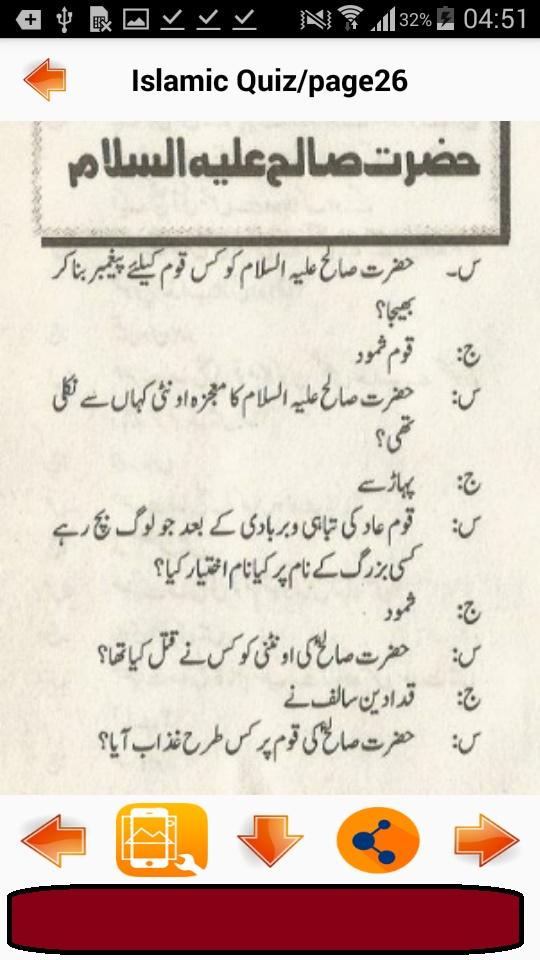 32% 04:51
Islamic Quiz/page26
حضرت صالح علیہ السلام
س۔ حضرت صالح علیہ السلام کو کس قوم کیلئے پیغمبر بنا کر
بھیجا؟
ج: قوم ثمود
س: حضرت صالح علیہ السلام کا معجزہ اونٹی کہاں سے نکلی
تھی؟
ج: پہاڑ سے
س: قوم عاد کی تباہی وبربادی کے بعد جو لوگ بچ رہے
کسی بزرگ کے نام پر کیا نام اختیار کیا؟
ج: ثمود
س: حضرت صالحؑ کی اونٹنی کو کس نے قتل کیا تھا؟
ج: قدادین سالف نے
س: حضرت صالحؑ کی قوم پر کس طرح عذاب آیا؟